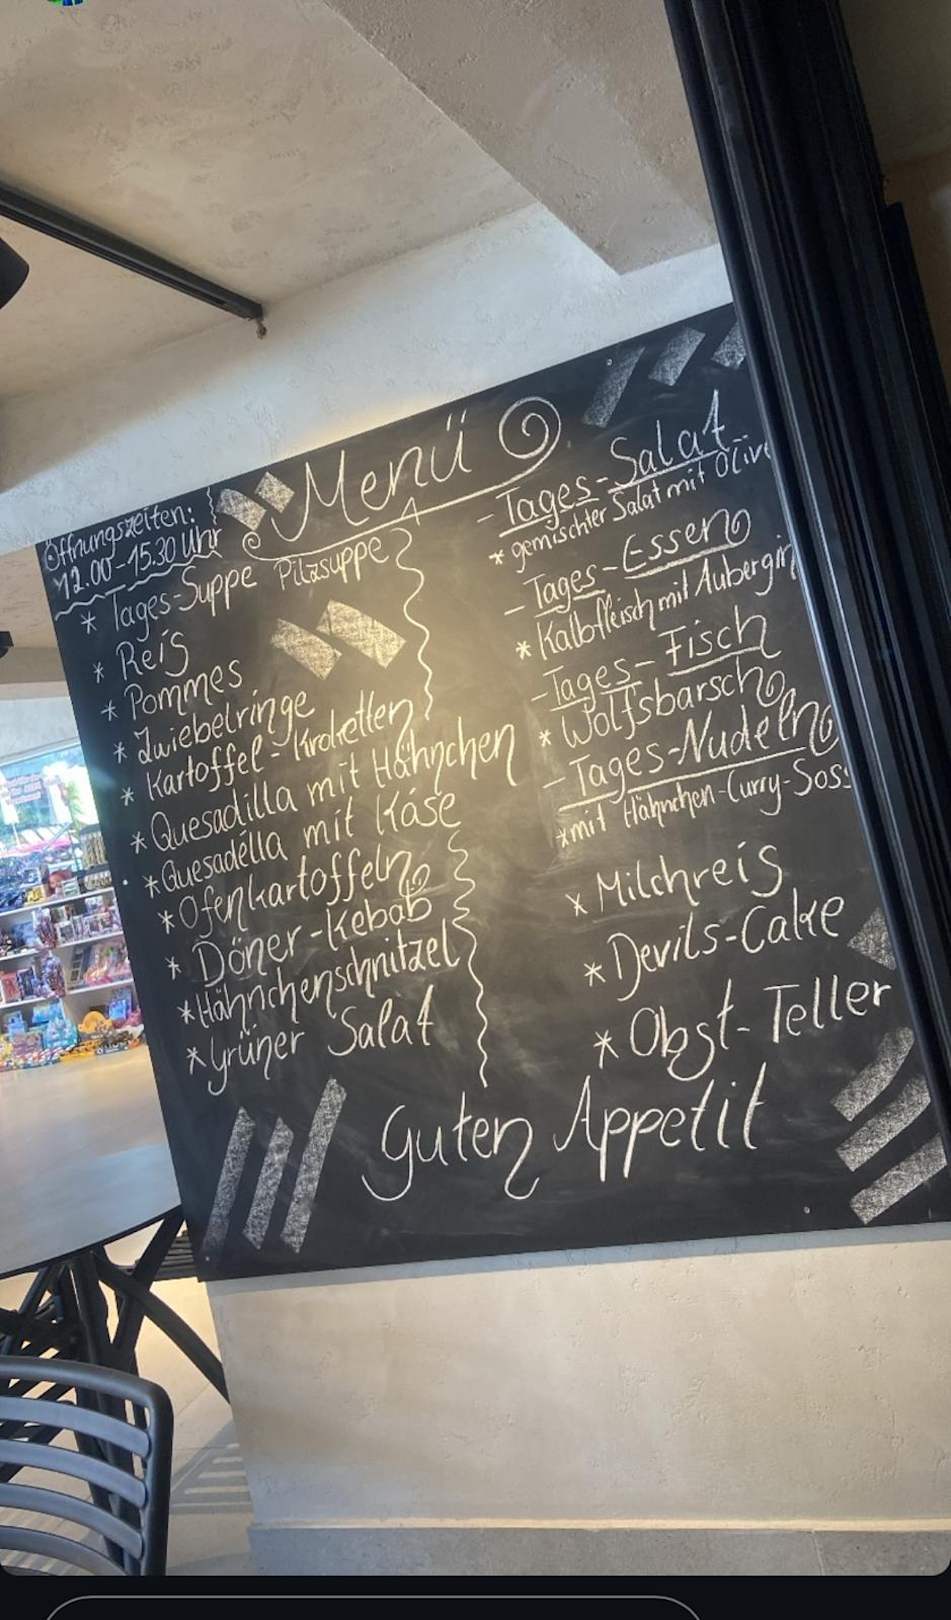 Menü
Öffnungszeiten:
12.00-15.30 Uhr
* Tages-Suppe Pilzsuppe
* Reis
* Pommes
* Zwiebelringe
* Kartoffel-Kroketten
* Quesadilla mit Hähnchen
* Quesadélla mit Käse
* Ofenkartoffeln
* Döner-Kebab
* Hähnchenschnitzel
* grüner Salat
- Tages-Salat
* gemischter Salat mit Olive
- Tages-Essen
* Kalbfleisch mit Aubergin
- Tages-Fisch
* Wolfsbarsch
- Tages-Nudeln
* mit Hähnchen-Curry-Soss
* Milchreis
* Devils-Cake
* Obst-Teller
Guten Appetit